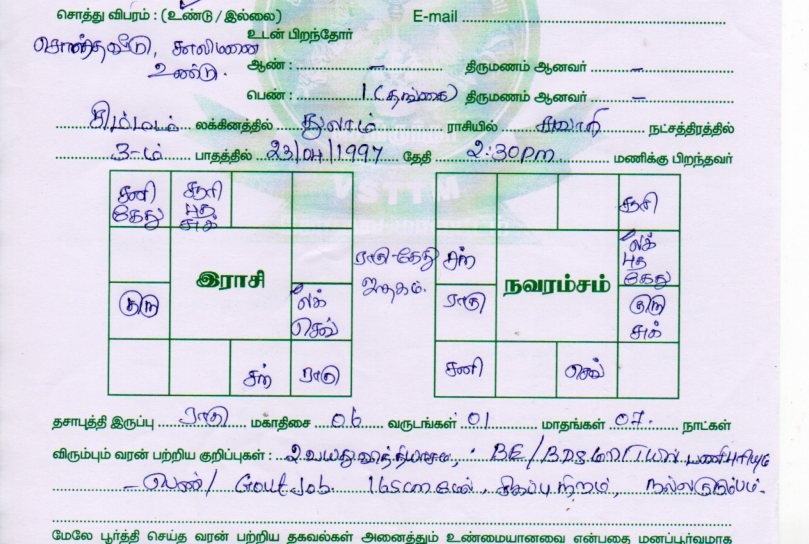 சொத்து விபரம் : (உண்டு / இல்லை) E-mail
சொந்தவீடு, காலிமனை
உண்டு.
உடன் பிறந்தோர்
ஆண் : – திருமணம் ஆனவர் –
பெண் : 1 (தங்கை) திருமணம் ஆனவர் –
சிம்மம் லக்கினத்தில் துலாம் ராசியில் சுவாதி நட்சத்திரத்தில்
3-ம் பாதத்தில் 23/04/1997 தேதி 2:30pm மணிக்கு பிறந்தவர்
சனி
கேது
சூரி
புத
சுக்
குரு
இராசி
லக்
செவ்
சந்
ராகு
ராகு-கேது
ஜாதகம்.
சூரி
சந்
லக்
புத
கேது
ராகு
நவரம்சம்
குரு
சுக்
சனி
செவ்
தசாபுத்தி இருப்பு ராகு மகாதிசை 06 வருடங்கள் 01 மாதங்கள் 07 நாட்கள்
விரும்பும் வரன் பற்றிய குறிப்புகள் : 2 வயது வித்தியாசம், BE/BDS
– பெண்/ Govt Job. 165cm மேல், சிகப்பு நிறம், நல்ல குடும்பம்.
மேலே பூர்த்தி செய்த வரன் பற்றிய தகவல்கள் அனைத்தும் உண்மையானவை என்பதை மனப்பூர்வமாக